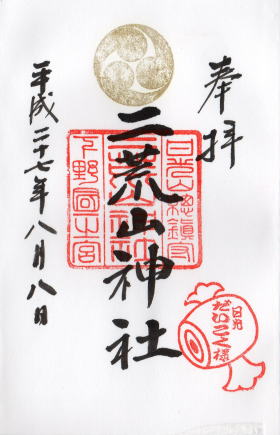 奉拝
二荒山神社
日光山総鎮守
下野国一之宮
平成二十七年八月八日
日光
だいこく様